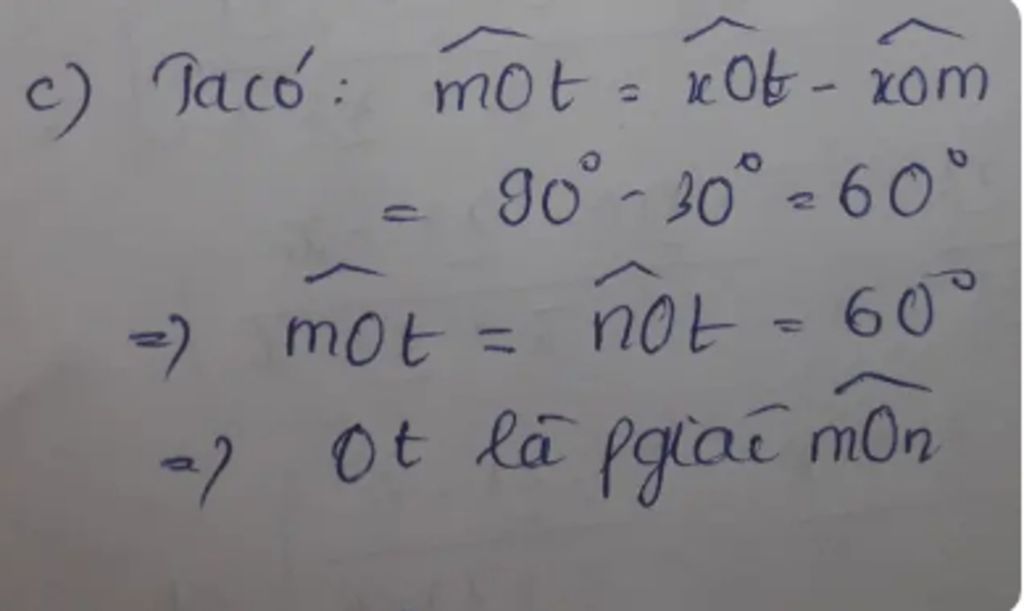 c) Ta có: $\widehat{mOt}$ = $\widehat{xOt}$ - $\widehat{xOm}$
= 90° - 30° = 60°
=> $\widehat{mOt}$ = $\widehat{nOt}$ = 60°
=> Ot là pgiác $\widehat{mOn}$